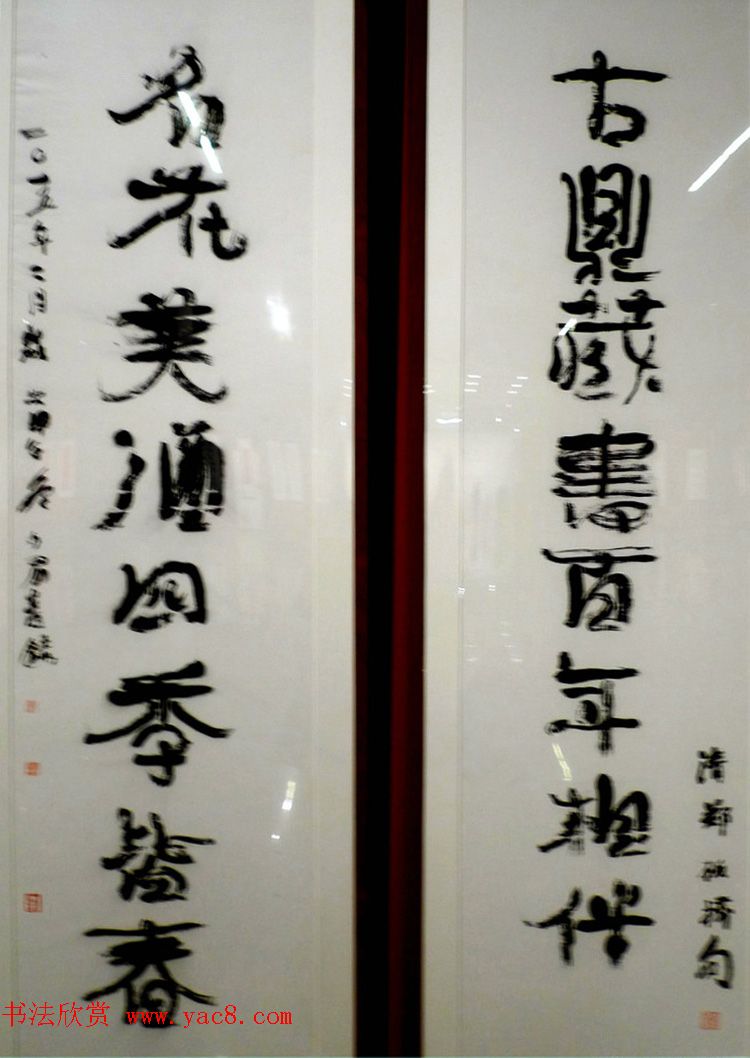 古鼎藏書百年相伴
清鄭板橋句
名花美酒四季皆春
二〇一五年二月
书法欣赏 www.yac8.com